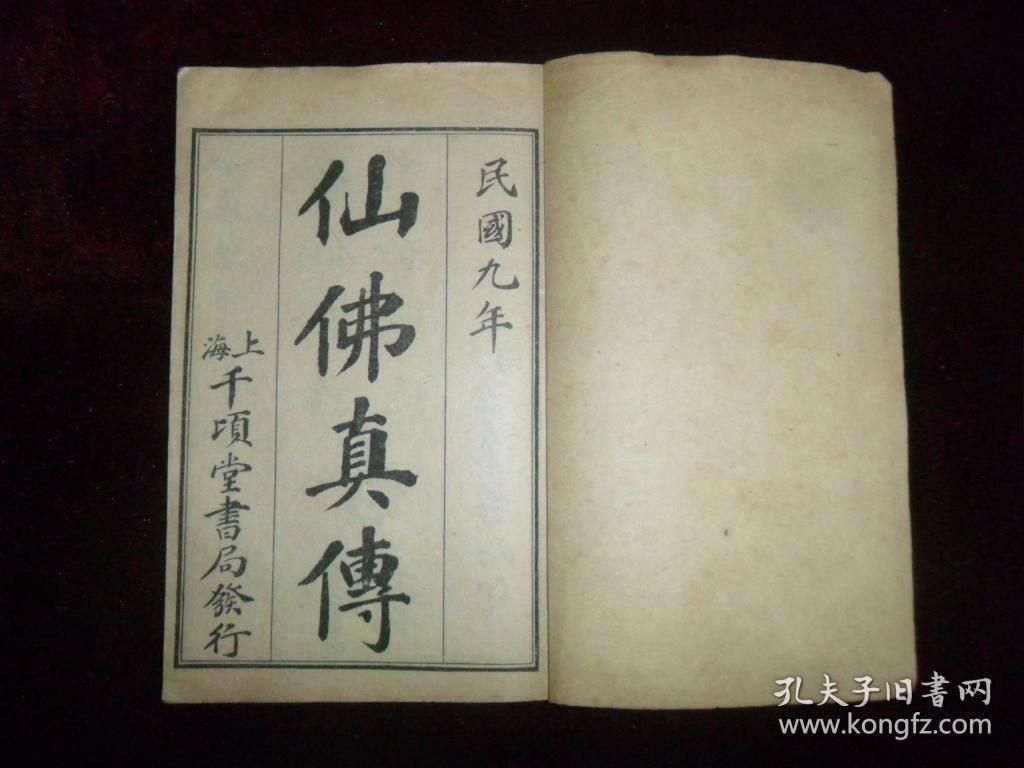 民國九年
仙佛真傳
上海
千頃堂書局發行
孔夫子旧书网
www.kongfz.com